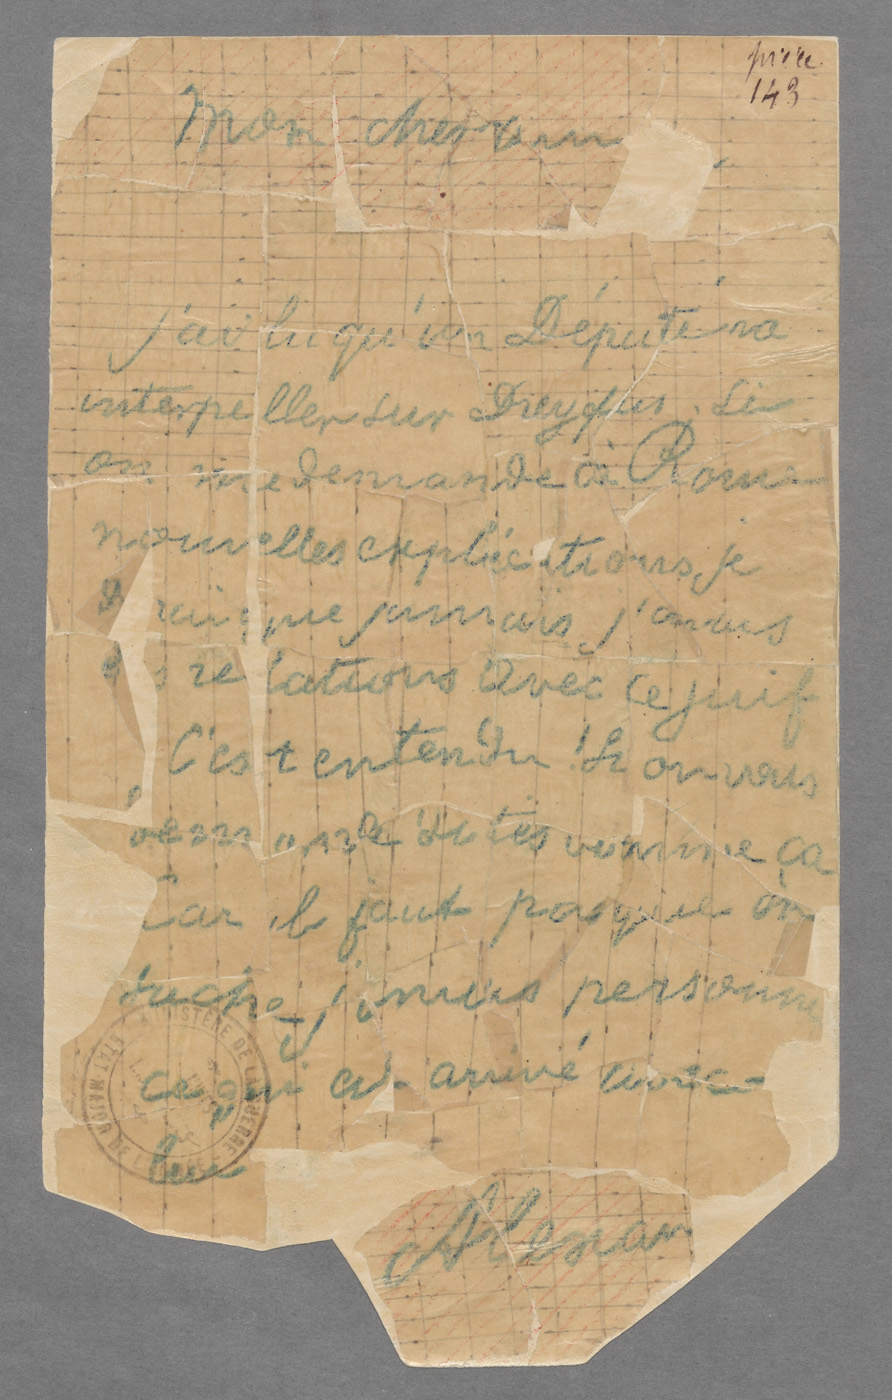 pièce
143
Mon cher ami
J'ai lu qu'un Député va
interpeller sur Dreyfus. Si
on me demande à Rome
nouvelles explications, je
dirai que jamais j'avais
des relations avec ce juif
C'est entendu! Si on vous
demande dites comme ça
Car il faut pas que on
sache jamais personne
ce qui est arrivé avec
lui
Alexan
MINISTÈRE DE LA GUERRE
ETAT MAJOR DE